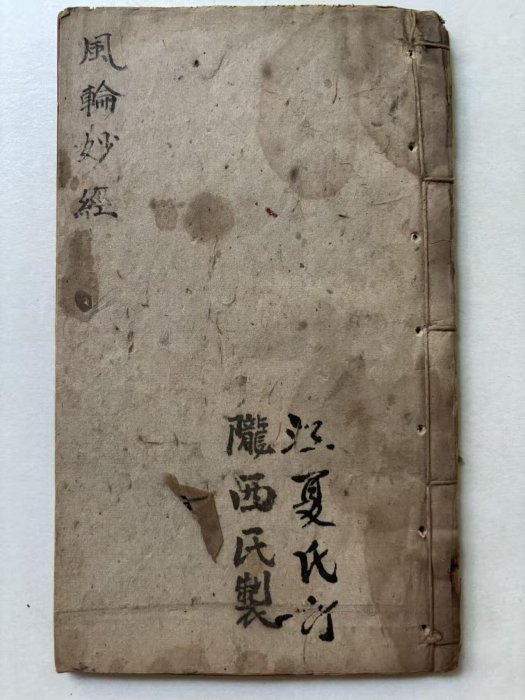 風輪妙經
江夏氏訂
隴西氏製